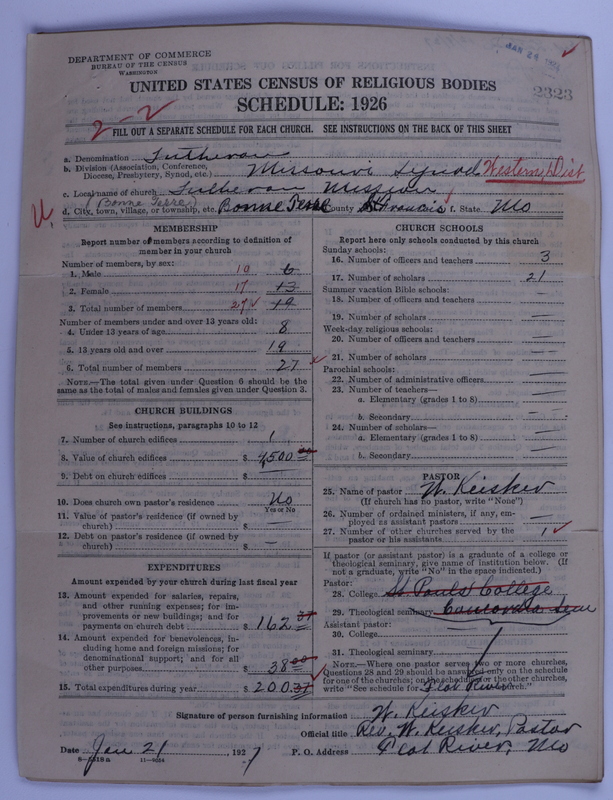 DEPARTMENT OF COMMERCE
BUREAU OF THE CENSUS
WASHINGTON
JAN 24
UNITED STATES CENSUS OF RELIGIOUS BODIES
SCHEDULE: 1926
2323
2-2
FILL OUT A SEPARATE SCHEDULE FOR EACH CHURCH. SEE INSTRUCTIONS ON THE BACK OF THIS SHEET
a. Denomination Lutheran
b. Division (Association, Conference, Diocese, Presbytery, Synod, etc.) Missouri Synod Western Dist
c. Local name of church Lutheran Mission
(Bonne Terre)
d. City, town, village, or township, etc. Bonne Terre County St Francis f. State Mo
U.
MEMBERSHIP
Report number of members according to definition of
member in your church
Number of members, by sex:
1. Male 10 6
2. Female 17 13
3. Total number of members 27 19
Number of members under and over 13 years old:
4. Under 13 years of age 8
5. 13 years old and over 19
6. Total number of members 27
NOTE.—The total given under Question 6 should be the
same as the total of males and females given under Question 3.
CHURCH BUILDINGS
See instructions, paragraphs 10 to 12
7. Number of church edifices 1
8. Value of church edifices $ 1,500 00
9. Debt on church edifices $ —
10. Does church own pastor's residence No
Yes or No
11. Value of pastor's residence (if owned by
church) $ —
12. Debt on pastor's residence (if owned by
church) $ —
EXPENDITURES
Amount expended by your church during last fiscal year
13. Amount expended for salaries, repairs,
and other running expenses; for im-
provements or new buildings; and for
payments on church debt $ 162 37
14. Amount expended for benevolences, in-
cluding home and foreign missions; for
denominational support; and for all
other purposes $ 38 00
15. Total expenditures during year $ 200 37
CHURCH SCHOOLS
Report here only schools conducted by this church
Sunday schools:
16. Number of officers and teachers 3
17. Number of scholars 21
Summer vacation Bible schools:
18. Number of officers and teachers —
19. Number of scholars —
Week-day religious schools:
20. Number of officers and teachers —
21. Number of scholars —
Parochial schools:
22. Number of administrative officers —
23. Number of teachers—
a. Elementary (grades 1 to 8) —
b. Secondary —
24. Number of scholars—
a. Elementary (grades 1 to 8) —
b. Secondary —
PASTOR
25. Name of pastor W. Keisker
(If church has no pastor, write "None")
26. Number of ordained ministers, if any, em-
ployed as assistant pastors —
27. Number of other churches served by the
pastor or his assistants 1
If pastor (or assistant pastor) is a graduate of a college or
theological seminary, give name of institution below. (If
not a graduate, write "No" in the space indicated.)
Pastor:
28. College St Pauls College
29. Theological seminary Concordia Sem
Assistant pastor:
30. College
31. Theological seminary
NOTE.—Where one pastor serves two or more churches,
Questions 28 and 29 should be answered only on the schedule
for one of the churches; on the schedule for the other churches,
write "See schedule for Flat River church."
Signature of person furnishing information W. Keisker
Official title Rev. W. Keisker, Pastor
Date Jan 21, 1927 P. O. Address Flat River, Mo